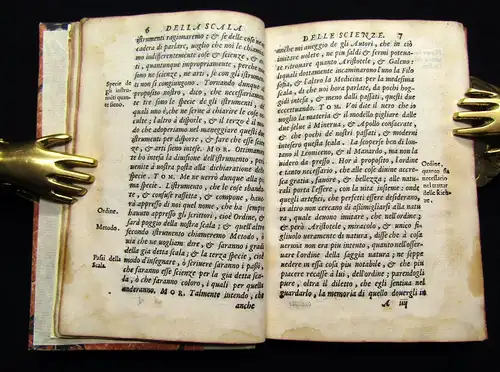 6 DELLA SCALA
istrumenti ragionaremo ; & se delle cose inten
caderà di parlare, voglio che noi le chiamia
mo indifferentemente cose & scienze, & ar
ti, quantunque impropriamente, perche non
sono ne scienze, ne arti, se con gli istrumenti
non si congiungono. Tornando dunque al
proposito nostro, dico, che necessariamen-
te tre sono le specie de gli istrumenti, de
quali, l'vno serue à chiarire le cose oscu-
te ; l'altro à disporle, & il terzo è il mo-
do che adoperiamo nel maneggiare questi
due istrumenti per disporle, & farne scien-
ze, & arti sieno intese. MOR. Ottima-
mente intesa la diuisione dell'istrumento, po-
tete venire alla dichiaratione delle sue
specie. TOM. Me ne verrò dunque alla prima
specie. L'istrumento, che le cose sbanda-
te, & confuse rassetta, & compone, hanno
hauuto appresso gli scrittori, cioè Ordine, &
saranno i poggi della nostra scala ; & quell'altro
secondo istrumento chiameremo Metodo, ò
via che ne vogliam dire, & saranno i gradi
della gia detta scala, & la terza specie, cioè
modo d'insegnare, ò scriuere saranno i passi,
che faranno esse scienze per la gia detta sca
la, ò che faranno coloro, i quali per quella
anderanno. MOR. Talmente intendo, che
anche
Specie de
gli istro-
menti quan
te sieno.
Ordine.
Metodo.
Passi della
Scala.
DELLE SCIENZE. 7
anche mi aueggio de gli Autori, che in ciò
imitate volere, ne piu saldi & fermi poteua
te ritrouare quanto Aristotele, & Galeno:
iquali dottamente incaminarono l'uno la Filo
sofia, & l'altro la Medicina per la medesima
scala, da che noi hora parlate, da pochi hog
gidì intesa, & meno dalli passati, questi
eccettuati. TOM. Voi dite il uero che io
uoglio la materia & il modello pigliare dalle
due sale di Minerua, & Apollo consecrate,
& che pochi de' nostri passati, & moderni
intesero questa scala. La scoperse ben di lon
tano il Leoniceno, & il Manardo, ma non la
uidero da presso. Hor à proposito, l'ordine
è tanto necessario, che alle cose diuine accre
sce gratia, fauore, & bellezza ; alle natu-
rali porta l'essere, con la vita insieme: onde
quegli artefici, che perfetti essere desiderano,
in altro non cercano di assimigliarsi alla natu
ra, quanto dire, imitate che nell'ordine ;
& però Aristotele, miracolo, & unico fi-
gliuolo ueramente di natura, disse che à cosa
ueruna non era piu intento, quanto nell'osser-
uare l'ordine della saggia natura ; ne seppe
uedere in essa cosa piu notabile, & che piu
piacere le recasse, à lui, l'ordine ; parendogli
pure, oltra il diletto, che egli sentiua nel
guardarlo, la memoria di quello douergli in
A iiij
Ordine,
quanto sia
necessario
nel trattar